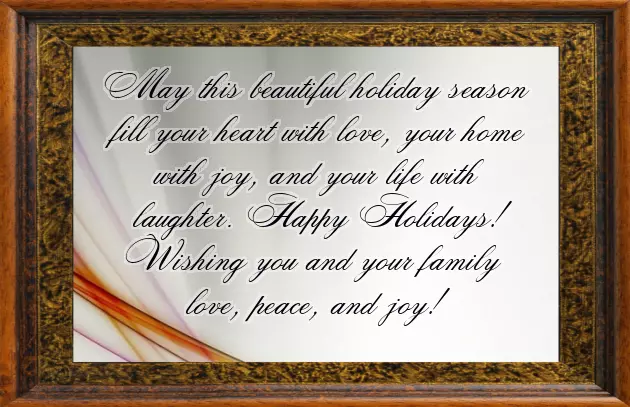 May this beautiful holiday season
fill your heart with love, your home
with joy, and your life with
laughter. Happy Holidays!
Wishing you and your family
love, peace, and joy!